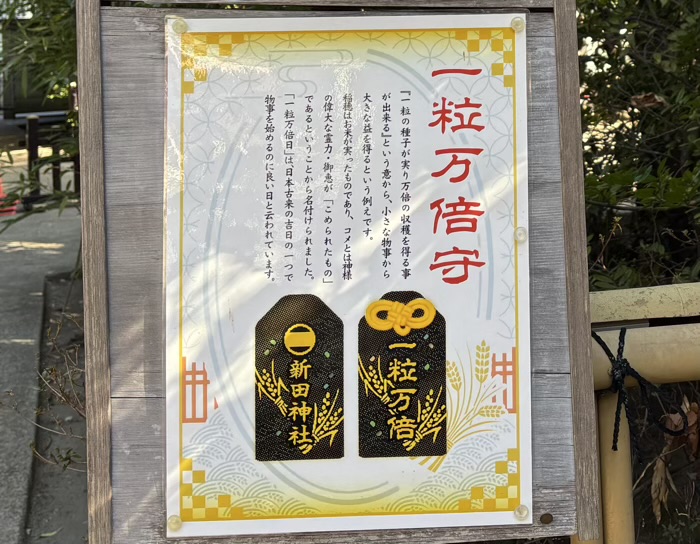 一粒万倍守
『一粒の種子が実り万倍の収穫を得る事
が出来る』という意から、小さな物事から
大きな益を得るという例えです。
稲穂はお米が実ったものであり、コメとは神様
の偉大な霊力・御恵が「こめられたもの」
であるということから名付けられました。
「一粒万倍日」は日本古来の吉日の一つで
物事を始めるのに良い日と云われています。
一粒万倍
新田神社